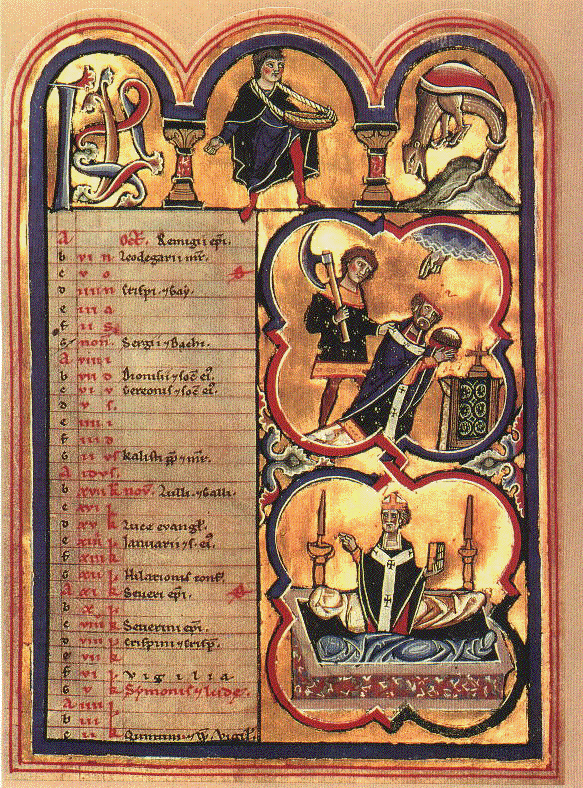 KL
A Oct. Remigii epi.
b vi n Leodegarii mr.
c v o
d iiii n Crispi ⁊
e iii a
f ii S
G non. Sergii ⁊ Bachi.
A viii i
b vii d Dionisii ⁊ soc ei.
c vi v Gereonis ⁊ soc ei.
d v s.
e iiii i
f iii d
G ii vs Kalisti pp ⁊ mr.
A idvs.
b xvii k nov. Lulli. ⁊ Galli.
c xvi k
d xv k Luce evangl.
e xiiii k Januarii ⁊ s. ei.
f xiii k
G xii k Hilarionis conf.
A xi k Severi epi.
b x k
c viiii k Severini epi.
d viii k Crispini ⁊ Crisp.
e vii k
f vi k Vigilia
G v k Symonis ⁊ Iude.
A iiii k
b iii k
c ii k Quintini Vigil.